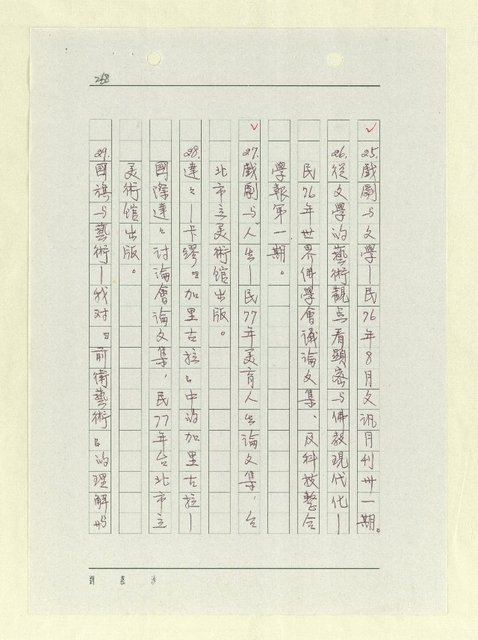 258
25.戲劇与文學—民76年8月文訊月刊卅一期。
26.從文學的藝術觀点看顯密与佛教現代化—
民76年世界佛學會議論文集、及科技整合
學報第一期。
27.戲劇与人生—民77年美育人生論文集，台
北市立美術館出版。
28.達々—卡繆『加里古拉』中的加里古拉—
國際達々討論會論文集，民77年台北市立
美術館出版。
29.國旗与藝術—我对『前衛藝術』的理解与